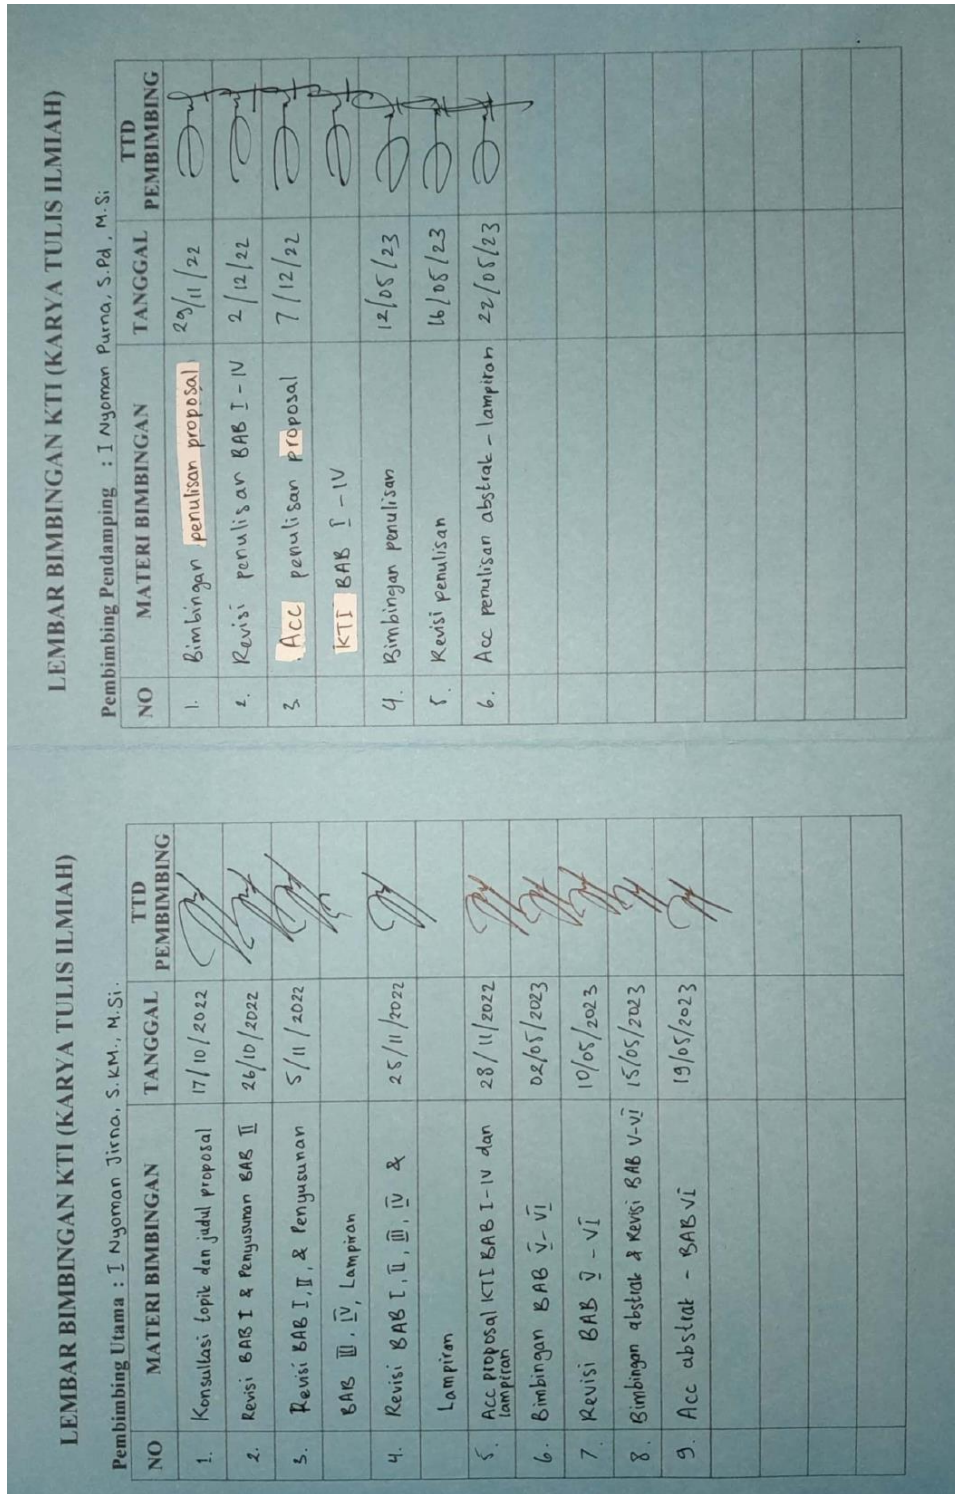 LEMBAR BIMBINGAN KTI (KARYA TULIS ILMIAH)
Pembimbing Utama : I Nyoman Jirna, S.KM., M.Si.
NO MATERI BIMBINGAN TANGGAL TTD PEMBIMBING
1. Konsultasi topik dan judul proposal 17/10/2022
2. Revisi BAB I & Penyusunan BAB II 26/10/2022
3. Revisi BAB I, II, & Penyusunan 5/11/2022
BAB III, IV, Lampiran
4. Revisi BAB I, II, III, IV & 25/11/2022
Lampiran
5. Acc proposal KTI BAB I-IV dan 28/11/2022
lampiran
6. Bimbingan BAB V-VI 02/05/2023
7. Revisi BAB V-VI 10/05/2023
8. Bimbingan abstrak & Revisi BAB V-VI 15/05/2023
9. Acc abstrak - BAB VI 19/05/2023
LEMBAR BIMBINGAN KTI (KARYA TULIS ILMIAH)
Pembimbing Pendamping : I Nyoman Purna, S.Pd, M.Si
NO MATERI BIMBINGAN TANGGAL TTD PEMBIMBING
1. Bimbingan penulisan proposal 29/11/22
2. Revisi penulisan BAB I-IV 2/12/22
3. Acc penulisan proposal 7/12/22
KTI BAB I-IV
4. Bimbingan penulisan 12/05/23
5. Revisi penulisan 16/05/23
6. Acc penulisan abstrak-lampiran 22/05/23